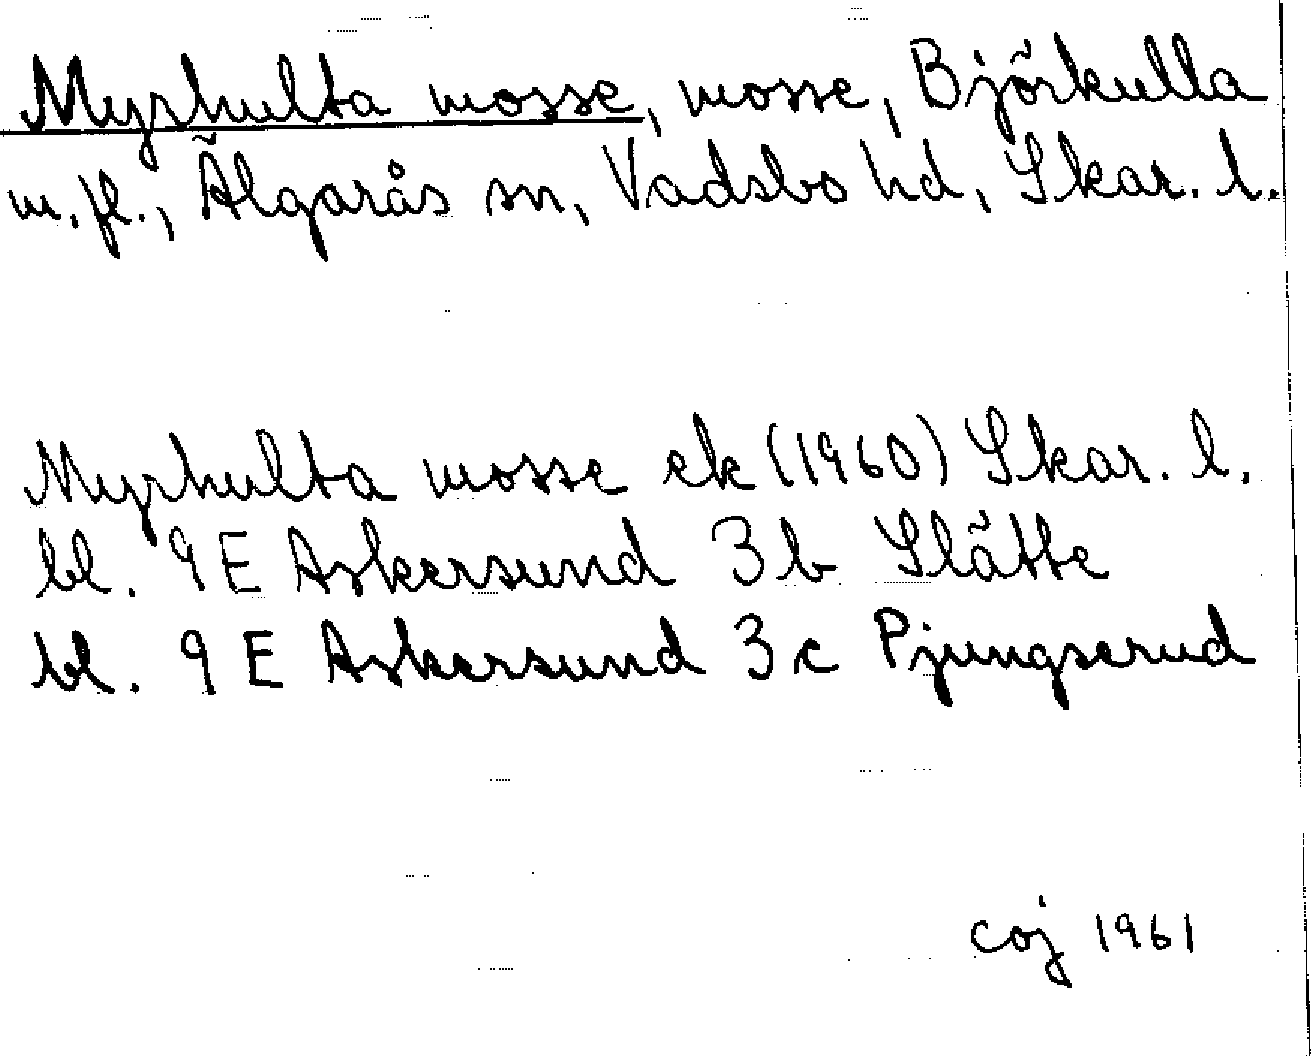 Myrhulta mosse, mosse, Björkulla
m. fl., Älgarås sn, Vadsbo hd, Skar. l.
Myrhulta mosse ek (1960) Skar. l.
bl. 9 E Askersund 3 b Slätte
bl. 9 E Askersund 3 c Pjungserud
coj 1961